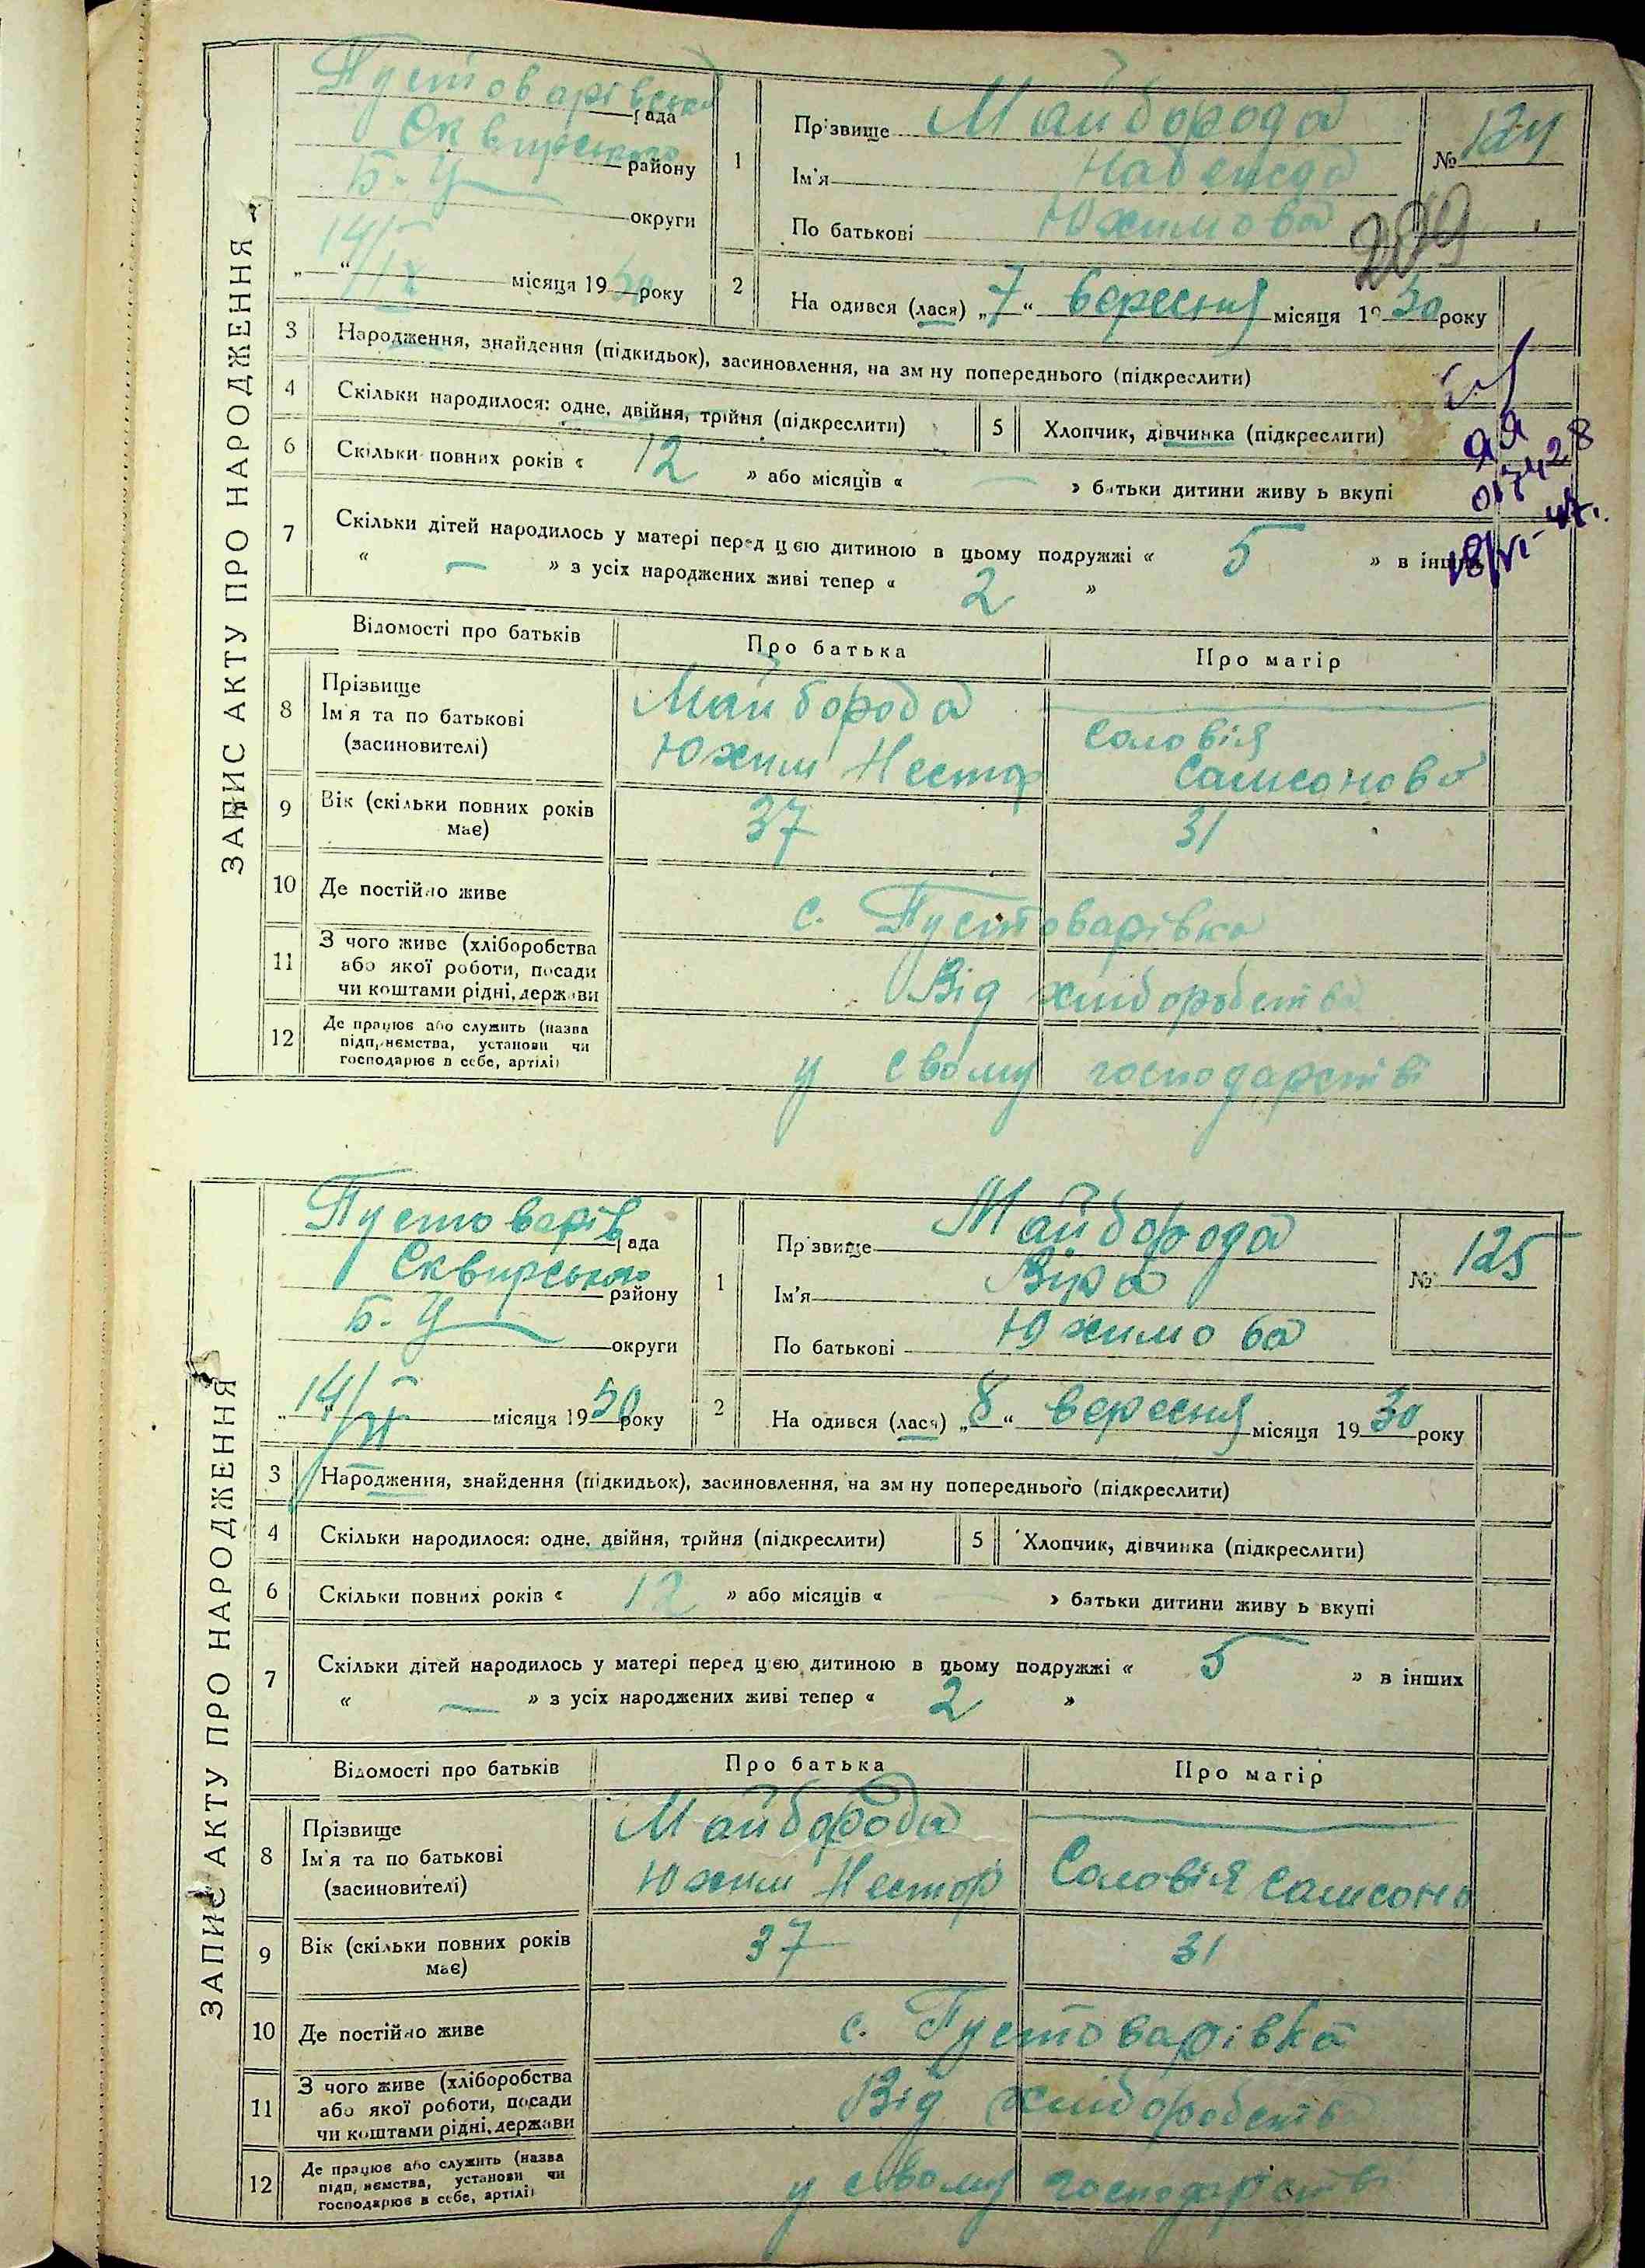 ЗАПИС АКТУ ПРО НАРОДЖЕННЯ
Пустоварівської рада
Сквирського району
Б-Ц округи
14/IX місяця 1930 року
1
Прізвище Майборода
Ім'я Надежда
По батькові Юхимова
№ 124
289
2
Народився (лася) „7“ вересня місяця 1930 року
3 Народження, знайдення (підкидьок), засиновлення, на зміну попереднього (підкреслити)
4 Скільки народилося: одне, двійня, трійня (підкреслити)
5 Хлопчик, дівчинка (підкреслити)
6 Скільки повних років « 12 » або місяців « — » батьки дитини живуть вкупі
7 Скільки дітей народилось у матері перед цією дитиною в цьому подружжі « 5 » в інших
« — » з усіх народжених живі тепер « 2 »
Відомості про батьків
Про батька
Про матір
8 Прізвище
Ім'я та по батькові
(засиновителі)
Майборода
Юхим Нестор
Соловія
Самсонова
9 Вік (скільки повних років
має)
37
31
10 Де постійно живе
с. Пустоварівка
11 З чого живе (хліборобства
або якої роботи, посади
чи коштами рідні, держави
Від хліборобства
12 Де працює або служить (назва
підприємства, установи чи
господарює в себе, артілі)
у свому господарстві
ЗАПИС АКТУ ПРО НАРОДЖЕННЯ
Пустоварів рада
Сквирського району
Б-Ц округи
14/IX місяця 1930 року
1
Прізвище Майборода
Ім'я Віра
По батькові Юхимова
№ 125
2
Народився (лася) „8“ вересня місяця 1930 року
3 Народження, знайдення (підкидьок), засиновлення, на зміну попереднього (підкреслити)
4 Скільки народилося: одне, двійня, трійня (підкреслити)
5 Хлопчик, дівчинка (підкреслити)
6 Скільки повних років « 12 » або місяців « — » батьки дитини живуть вкупі
7 Скільки дітей народилось у матері перед цією дитиною в цьому подружжі « 5 » в інших
« — » з усіх народжених живі тепер « 2 »
Відомості про батьків
Про батька
Про матір
8 Прізвище
Ім'я та по батькові
(засиновителі)
Майборода
Юхим Нестор
Соловія Самсоно
9 Вік (скільки повних років
має)
37
31
10 Де постійно живе
с. Пустоварівка
11 З чого живе (хліборобства
або якої роботи, посади
чи коштами рідні, держави
Від хліборобств
12 Де працює або служить (назва
підприємства, установи чи
господарює в себе, артілі)
у свому господарстві